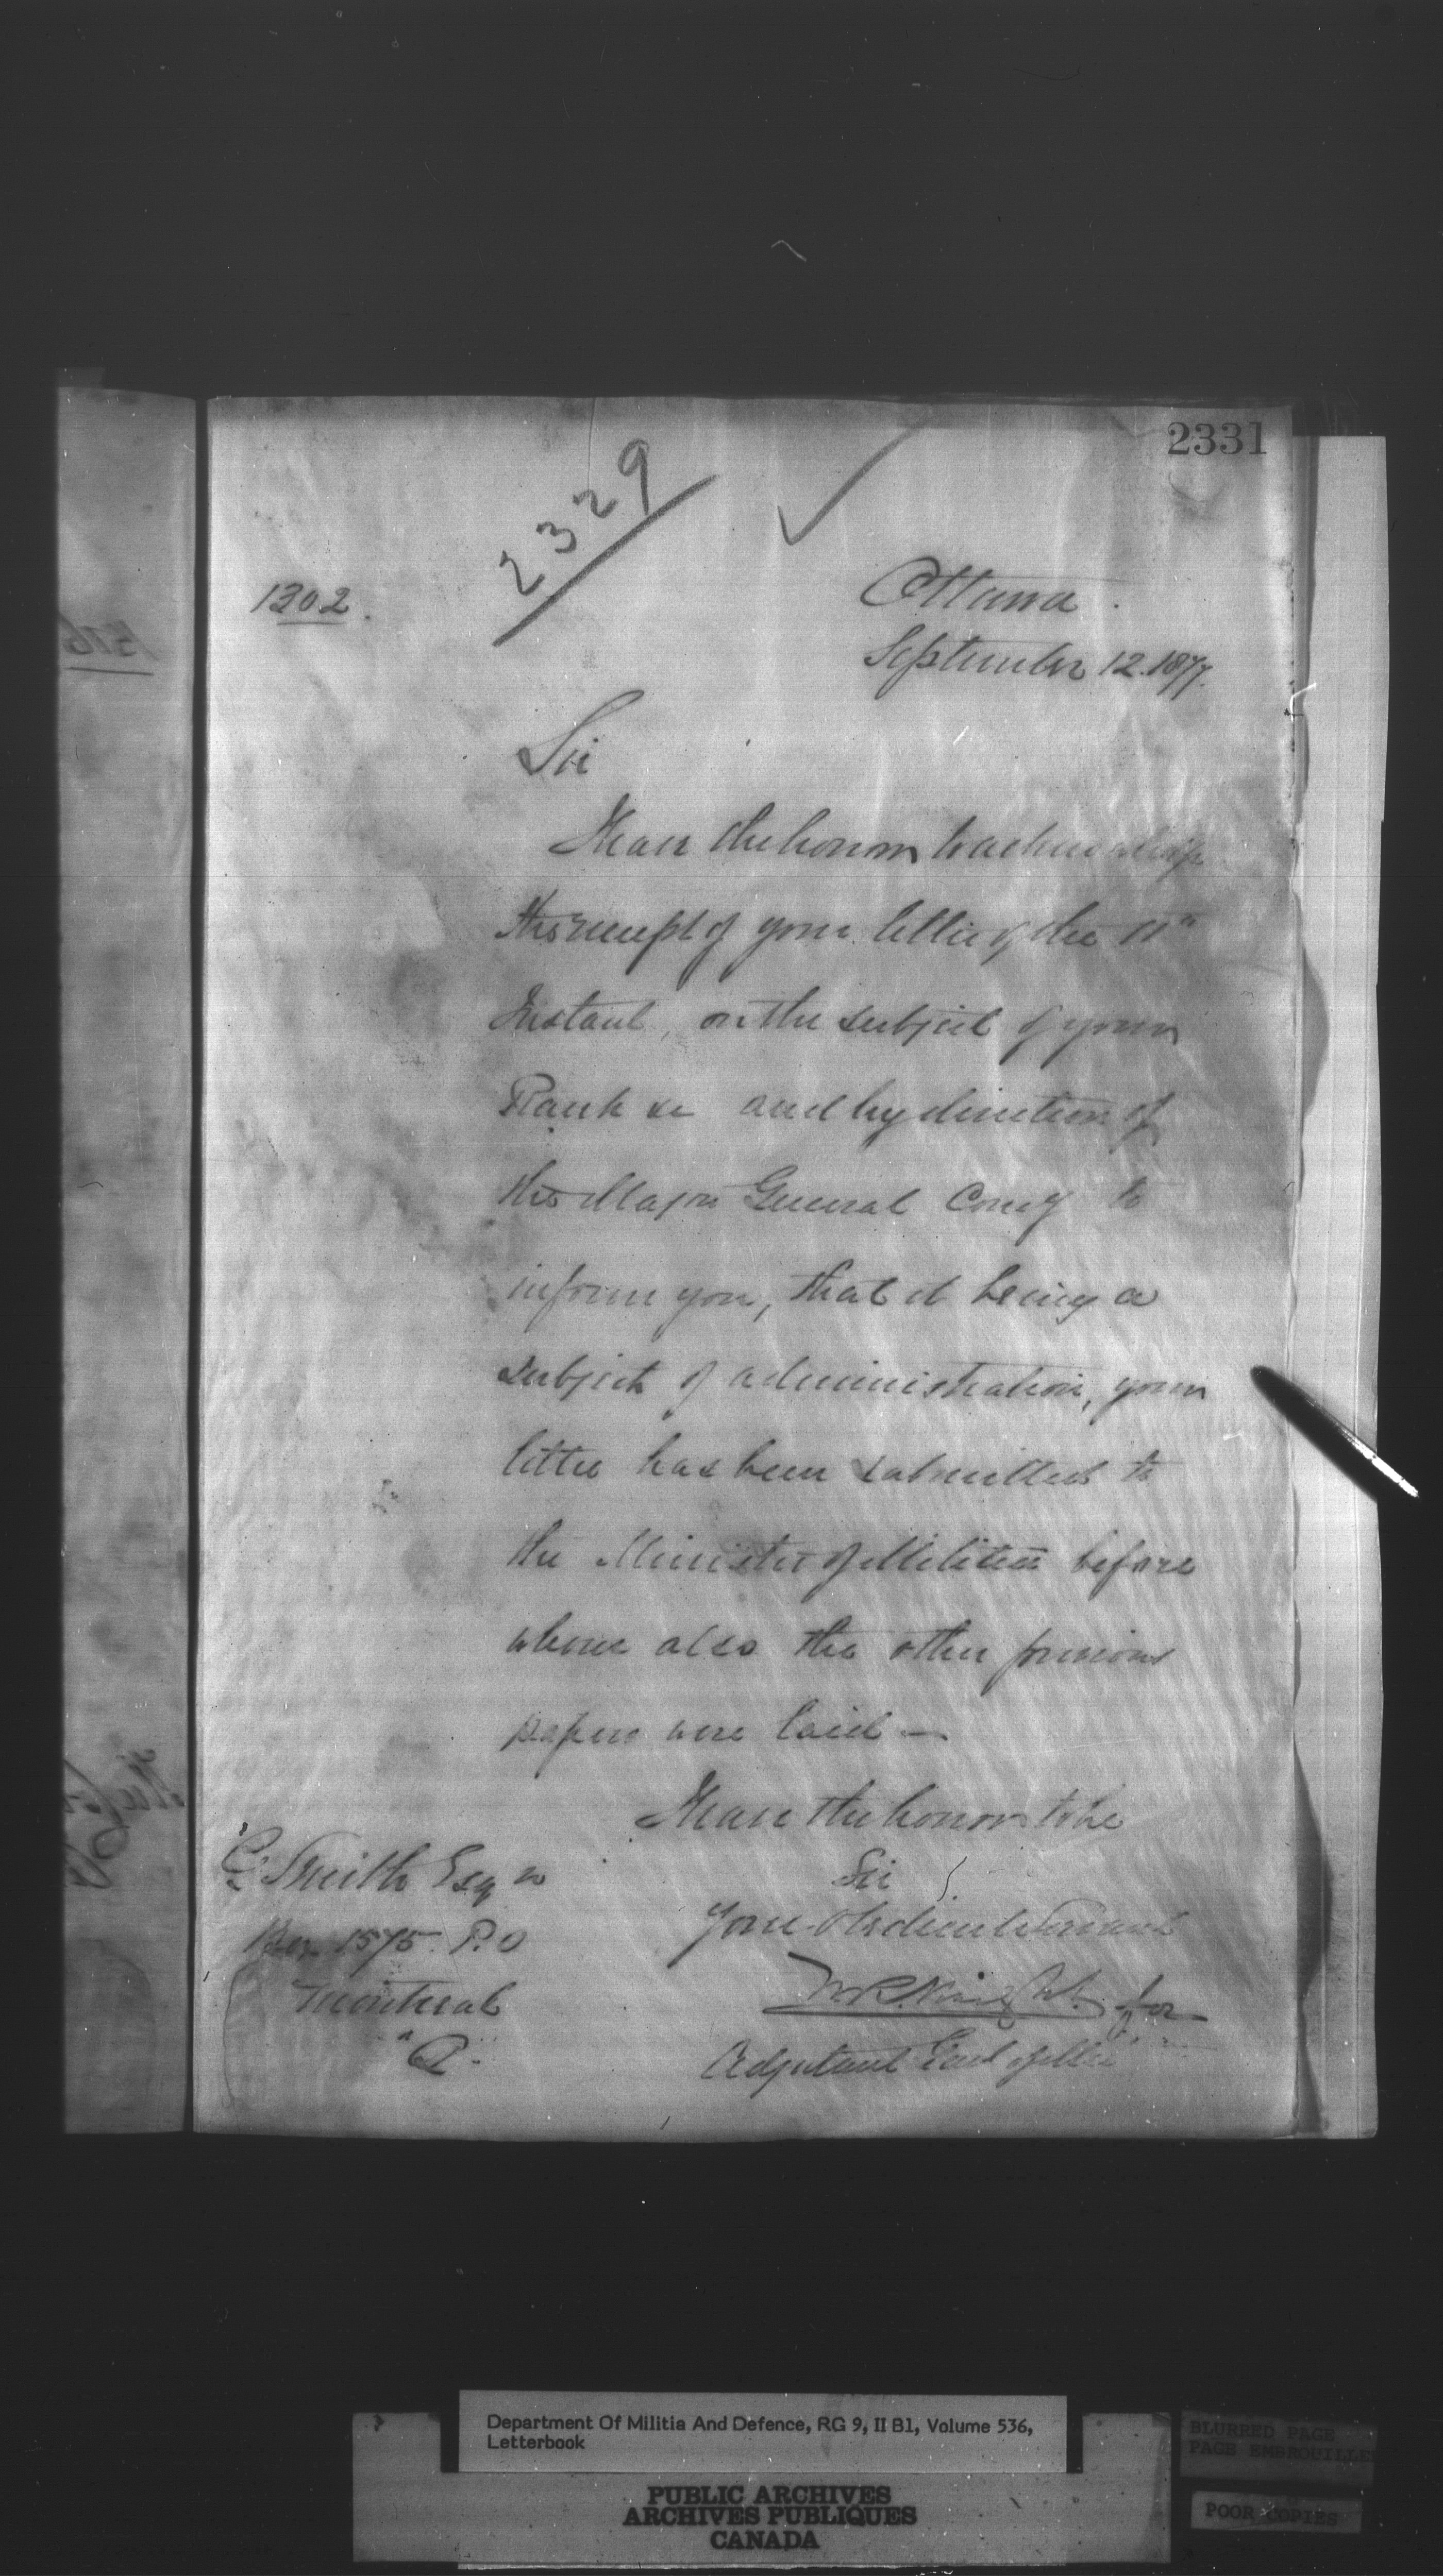 2331
2329
1302.
Ottawa.
September 12. 1877.
Sir
I have the honor to acknowledge
the receipt of your letter of the 11"
Instant, on the subject of your
Rank &c and by direction of
the Major General Comg to
inform you, that it being a
subject of administration, your
letter has been submitted to
the Minister of Militia before
whom also the other previous
papers were laid —
I have the honor to be
Sir
Your obedient Servant
for
Adjutant Genl of Mila
C. Smith Esqre
Box 1575. P.O
Montreal
"Q".
Department Of Militia And Defence, RG 9, II B1, Volume 536,
Letterbook
PUBLIC ARCHIVES
ARCHIVES PUBLIQUES
CANADA
BLURRED PAGE
PAGE EMBROUILLE
POOR COPIES